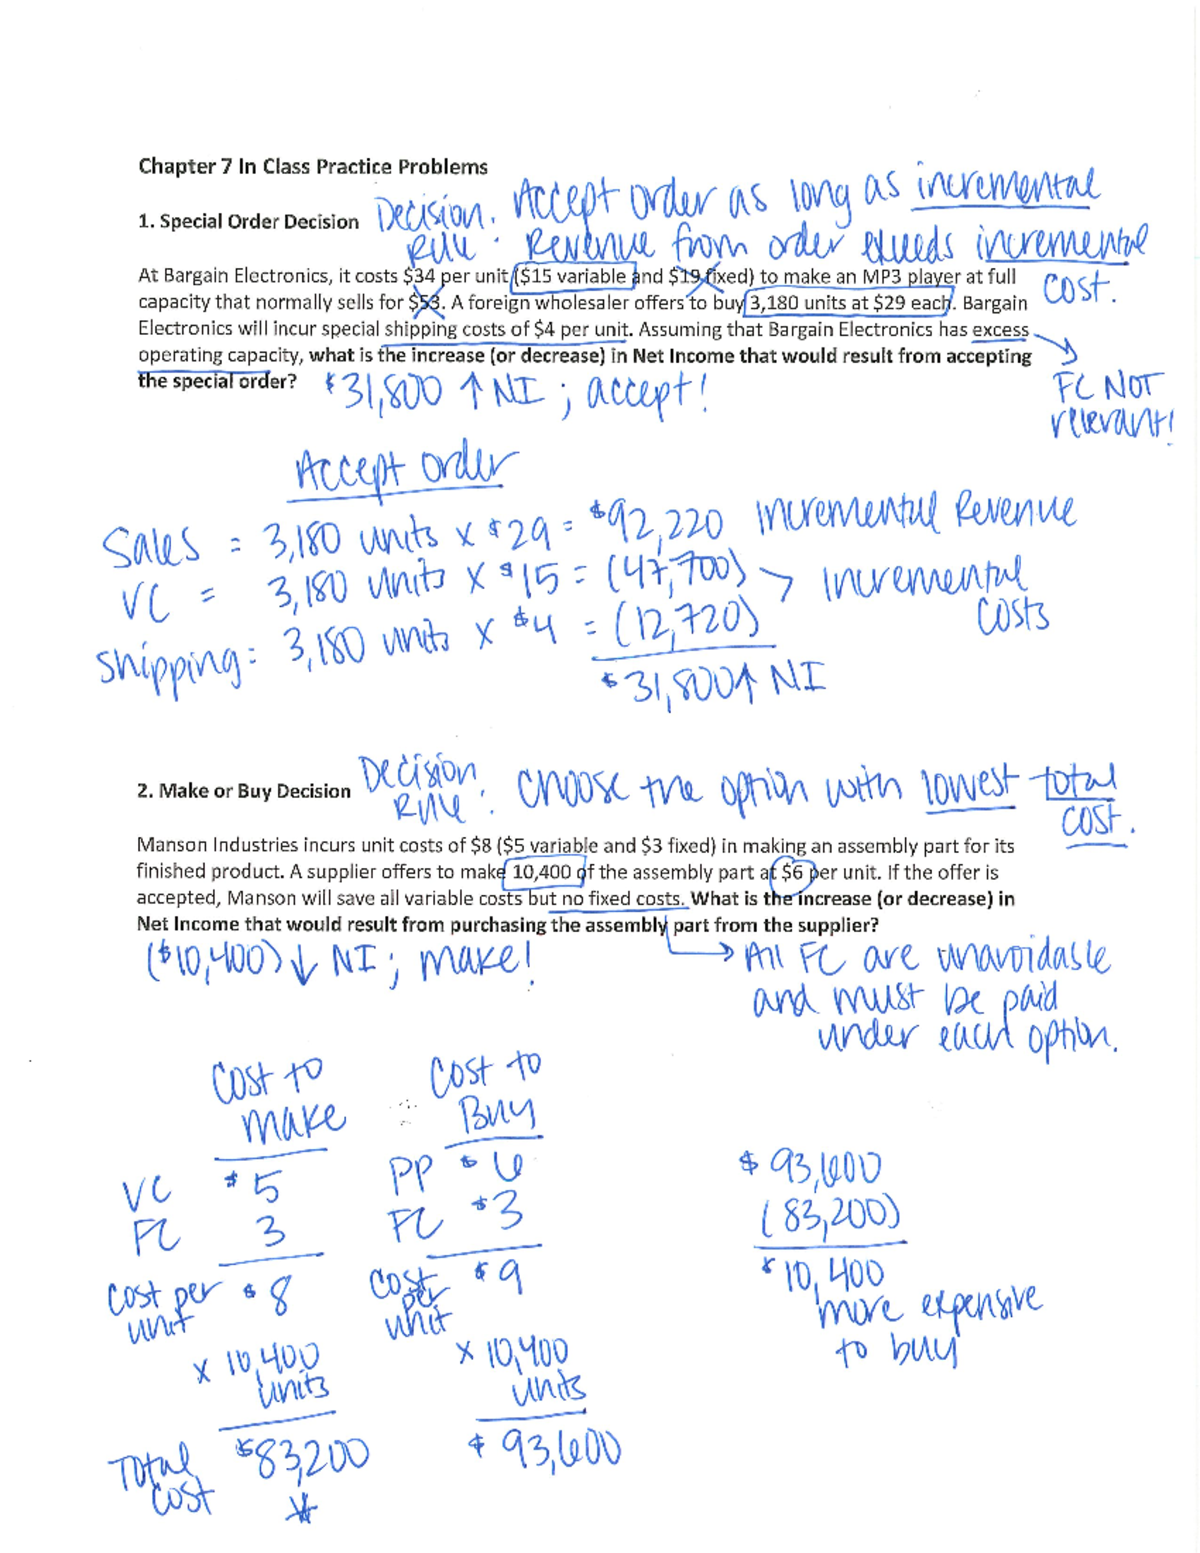 Chapter 7 In Class Practice Problems
1. Special Order Decision
Decision Rule: Accept order as long as incremental
Revenue from order exceeds incremental
cost.
At Bargain Electronics, it costs $34 per unit ($15 variable and $19 fixed) to make an MP3 player at full
capacity that normally sells for $53. A foreign wholesaler offers to buy 3,180 units at $29 each. Bargain
Electronics will incur special shipping costs of $4 per unit. Assuming that Bargain Electronics has excess
operating capacity, what is the increase (or decrease) in Net Income that would result from accepting
the special order?
$31,800 ↑ NI ; accept!
→ FC NOT
relevant!
Accept order
Sales = 3,180 units x $29 = $92,220 Incremental Revenue
VC = 3,180 units x $15 = (47,700) > Incremental
costs
Shipping: 3,180 units x $4 = (12,720)
$31,800↑ NI
2. Make or Buy Decision
Decision Rule: Choose the option with lowest total
cost.
Manson Industries incurs unit costs of $8 ($5 variable and $3 fixed) in making an assembly part for its
finished product. A supplier offers to make 10,400 of the assembly part at $6 per unit. If the offer is
accepted, Manson will save all variable costs but no fixed costs. What is the increase (or decrease) in
Net Income that would result from purchasing the assembly part from the supplier?
($10,400) ↓ NI ; make!
→ All FC are unavoidable
and must be paid
under each option.
Cost to
make
VC $5
FC 3
Cost per
unit $8
x 10,400
units
Total
cost $83,200
*
Cost to
Buy
PP $6
FC $3
Cost
per
unit $9
x 10,400
units
$93,600
$93,600
(83,200)
$10,400
more expensive
to buy